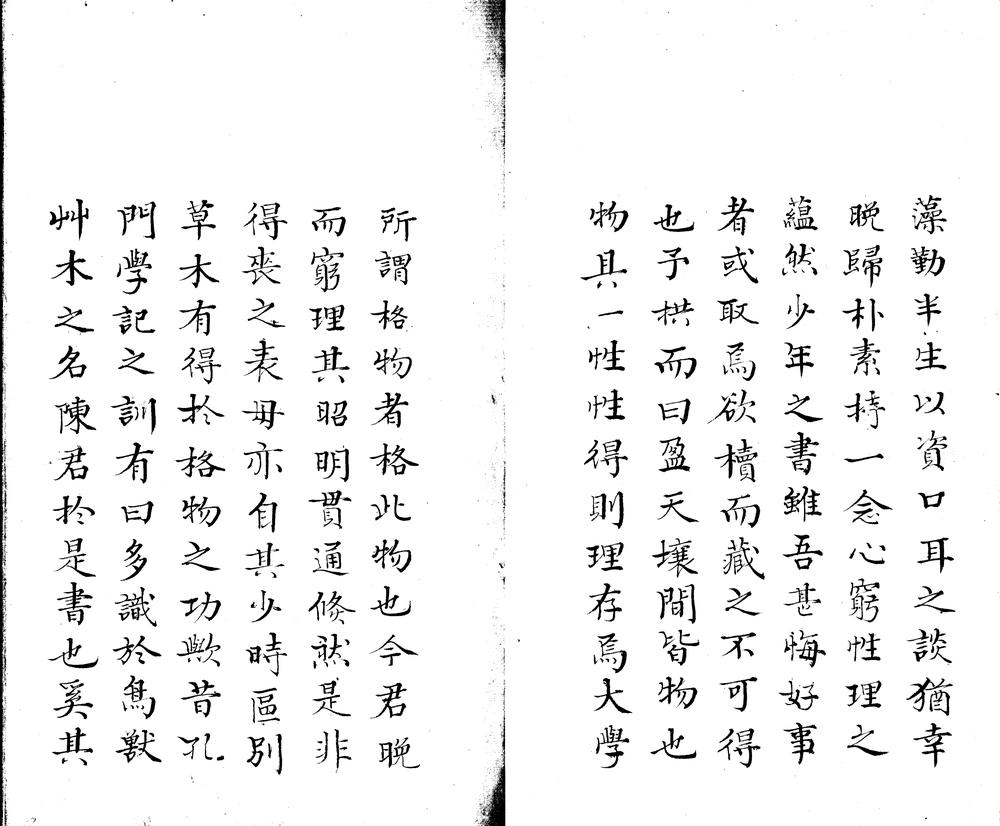 藻勤半生以資口耳之談猶幸
晩歸朴素持一念心窮性理之
蘊然少年之書雖吾甚悔好事
者或取焉欲櫝而藏之不可得
也予拱而曰盈天壤間皆物也
物具一性性得則理存焉大學
所謂格物者格此物也今君晩
而窮理其昭明貫通倐然是非
得喪之表毋亦自其少時區別
草木有得於格物之功歟昔孔
門學記之訓有曰多識於鳥獸
艸木之名陳君於是書也奚其